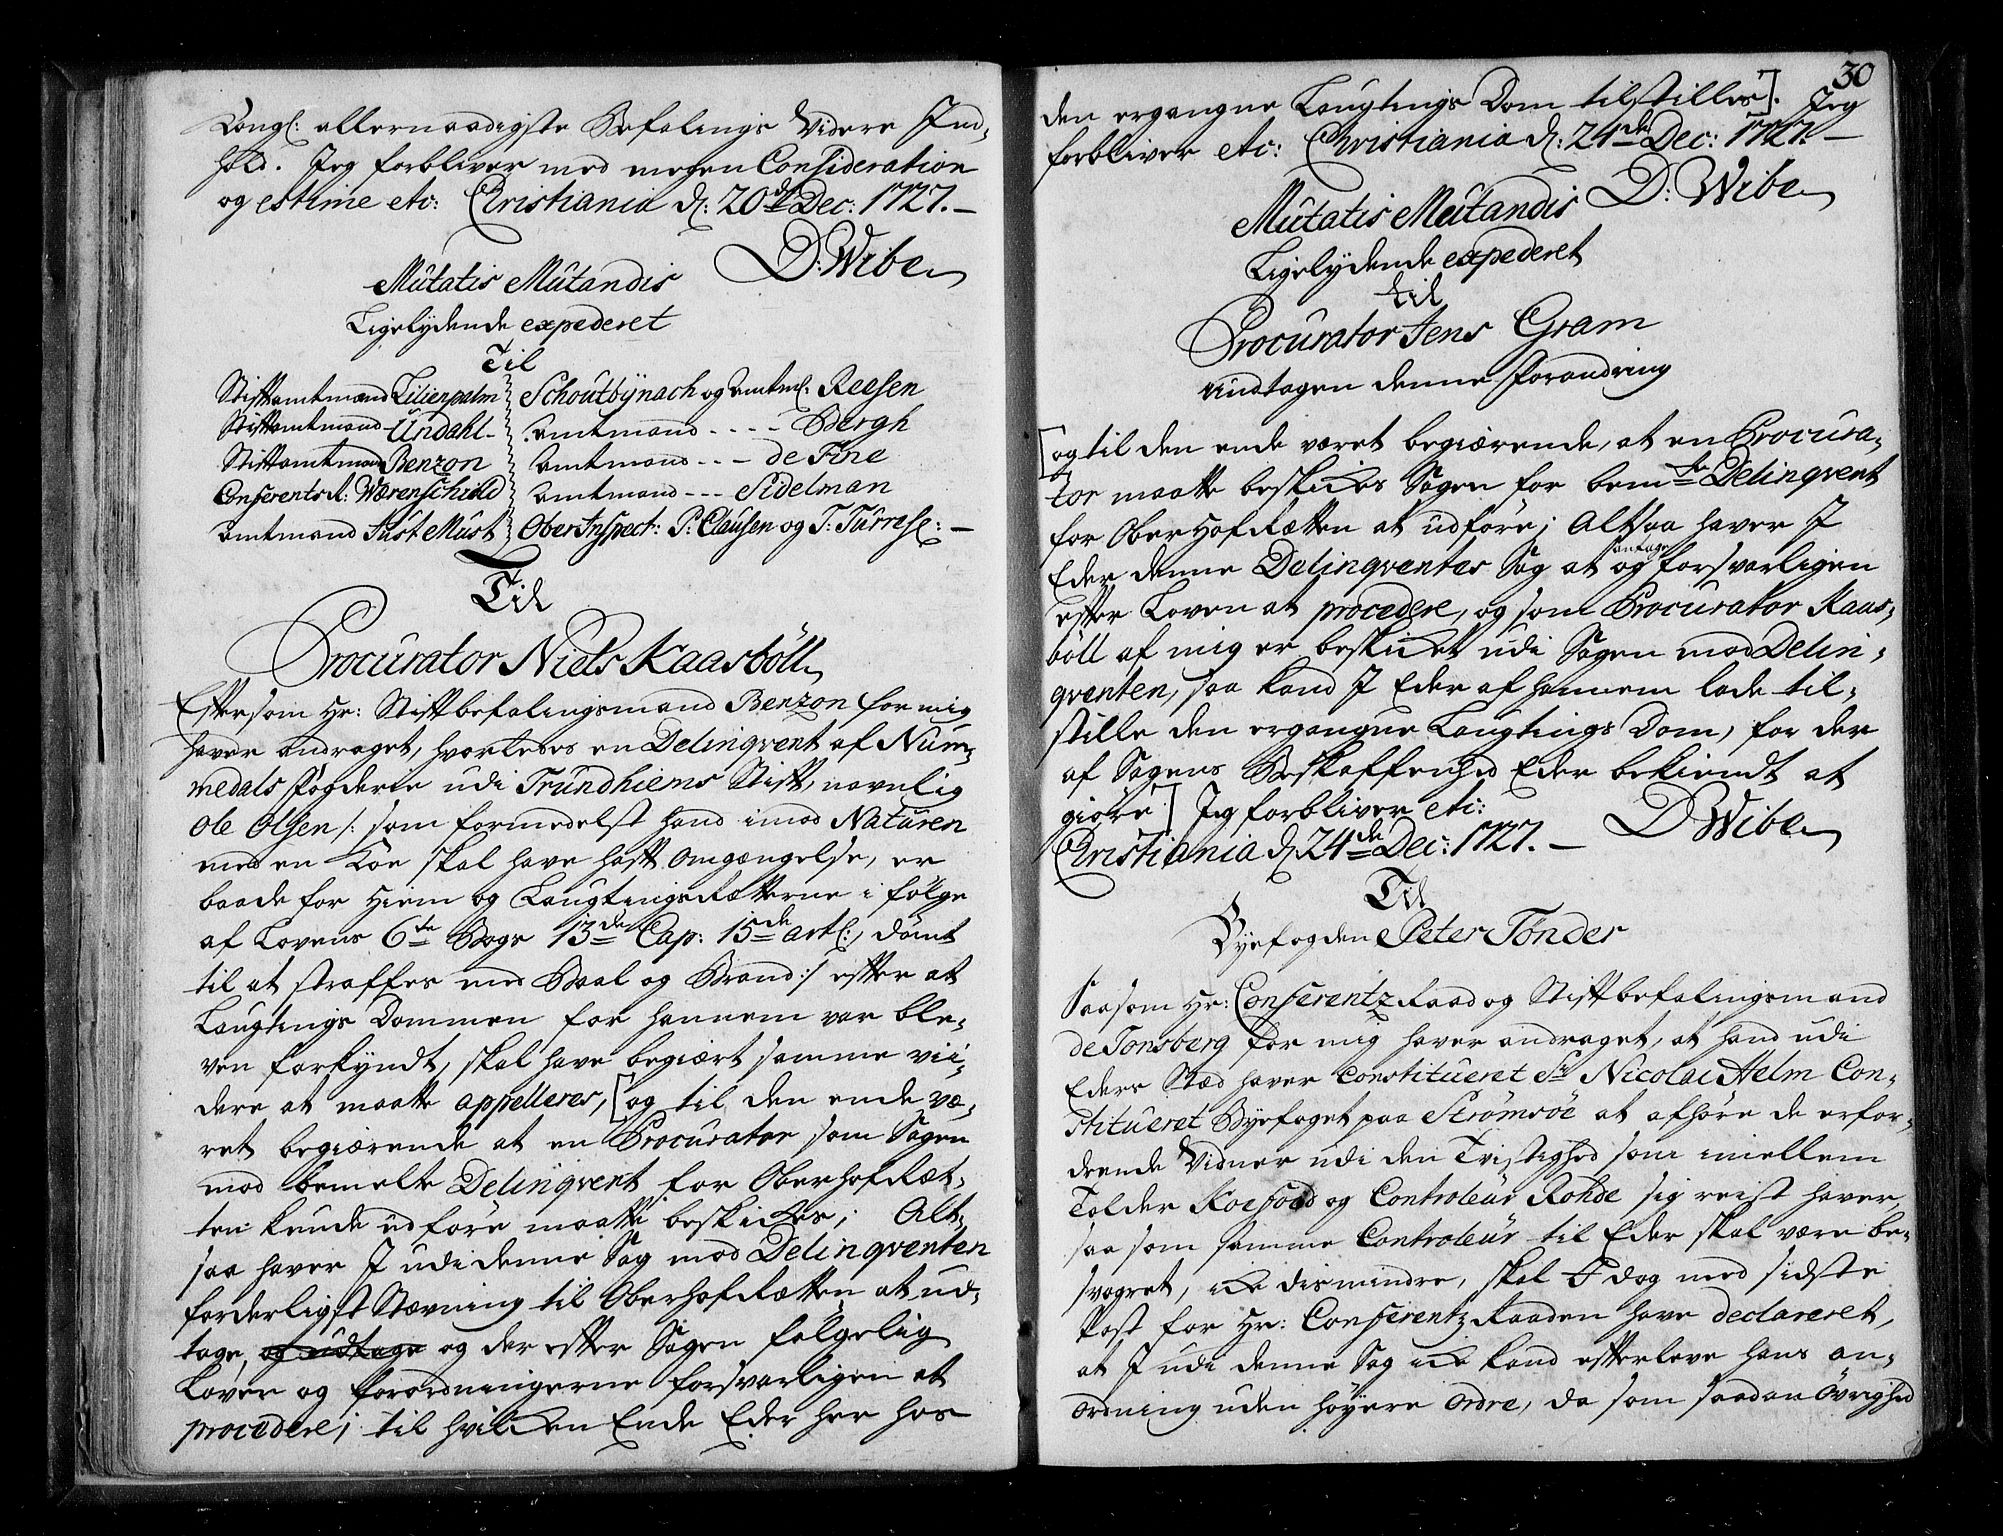 Kongl: allernaadigste Befalings Videre Ind-
hold. Jeg forbliver med megen Consideration
og estime etc: Christiania d: 20de Dec: 1727.
D: Wibe
Mutatis Mutandis
Ligelydende expederet
Til
Stiftamtmand Lilienpalm Schoutbynach og Amtmd: Reesen
Stiftamtmand Undahl Amtmand - - - - Bergh
Stiftamtmand Benzon Amtmand - - - de Fine
Conferents R: Wærenschiold Amtmand - - - Sidelman
Amtmand Just Must Ober Inspect: P: Clausen og T: Turres:
Til
Procurator Niels Kaasböll
Eftersom Hr: Stiftbefalingsmand Benzon for mig
haver andraget, hvorledes en Delinqvent af Num-
medals Fogderie udi Trundhiems Stift, navnlig
Ole Olsen /: som formedelst hand imod Naturen
med en Koe skal have hafft Omgængelse, er
baade for Hiem og Laugtings Retterne i fölge
af Lovens 6te Bogs 13de Cap: 15de artl:, dömt
til at straffes med Baal og Brand :/ efter at
Laugtings Dommen for hannem var ble-
ven forkyndt, skal have begiært samme vii-
dere at maatte appelleres, [og til den ende væ-
ret begiærende at en Procurator som Sagen
mod bemelte Delinqvent for Oberhofræt-
ten kunde udföre maatte beskickes; Alt-
saa haver I udi denne Sag mod Delinqventen
forderligst Stævning til Oberhofrætten at ud-
tage, og udtage og der efter Sagen fölgelig
Loven og Forordningerne forsvarligen at
procedere; til hvilcken Ende Eder her hos
30
den ergangne Laugtings Dom tilstilles]. Jeg
forbliver etc: Christiania d: 24de Dec: 1727.
D: Wibe
Mutatis Mutandis
Ligelydende expederet
til
Procurator Jens Gram
undtagen denne forandring
[og til den ende været begiærende, at en Procura-
tor maatte beskickes Sagen for bemte Delinqvent
for Ober Hofrætten at udföre; Altsaa haver I
Eder denne Delinqventes Sag at antage og forsvarligen
efter Loven at procedere, og som Procurator Kaas-
böll af mig er beskicket udi Sagen mod Delin-
qventen, saa kand I Eder af hannem lade til-
stille den ergangne Laugtings Dom, for der
af Sagens Beskaffenhed Eder bekiendt at
giöre] Jeg forbliver etc:
Christiania d: 24de Dec: 1727.
D Wibe
Til
Byefogden Peter Tönder
Saasom Hr: Conferentz Raad og Stiftbefalingsmand
de Tonsberg for mig haver andraget, at hand udi
Eders Stæd haver Constitueret Sr Nicolai Helm Con-
stitueret Byefoget paa Strömsöe at afhöre de erfor-
drende Vidner udi den Tvistighed som imellem
Tolder Koefoed og Controleur Rohde sig reist haver,
saa som samme Controleur til Eder skal være be-
svogret, icke dismindre, skal I dog med sidste
Post for Hr: Conferentz Raaden have declareret,
at I udi denne Sag icke kand efterleve hans an-
ordning uden höyere Ordre, da som saadan Övrighed